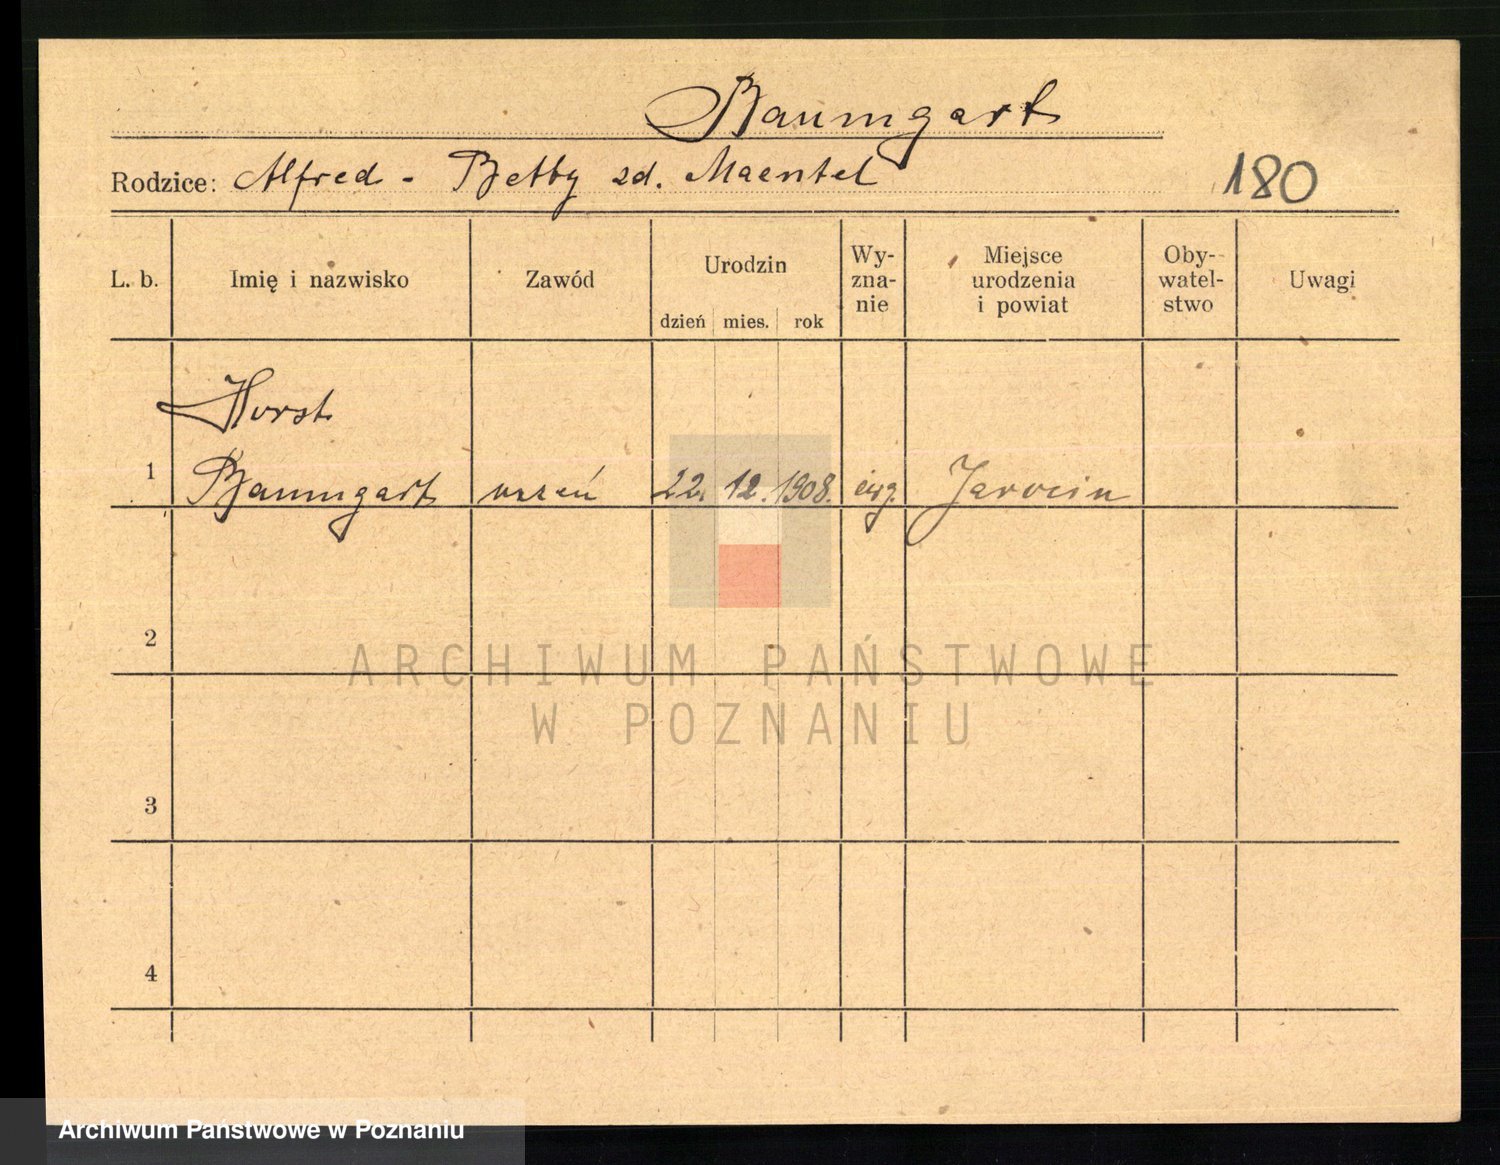 Baumgart
Rodzice: Alfred - Betby zd. Maentel
180
L. b.
Imię i nazwisko
Zawód
Urodzin
dzień mies. rok
Wy-
zna-
nie
Miejsce
urodzenia
i powiat
Oby-
watel-
stwo
Uwagi
Horst
1 Baumgart uczeń 22. 12. 1908. Jarocin
2
3
4
ARCHIWUM PAŃSTWOWE
W POZNANIU
Archiwum Państwowe w Poznaniu